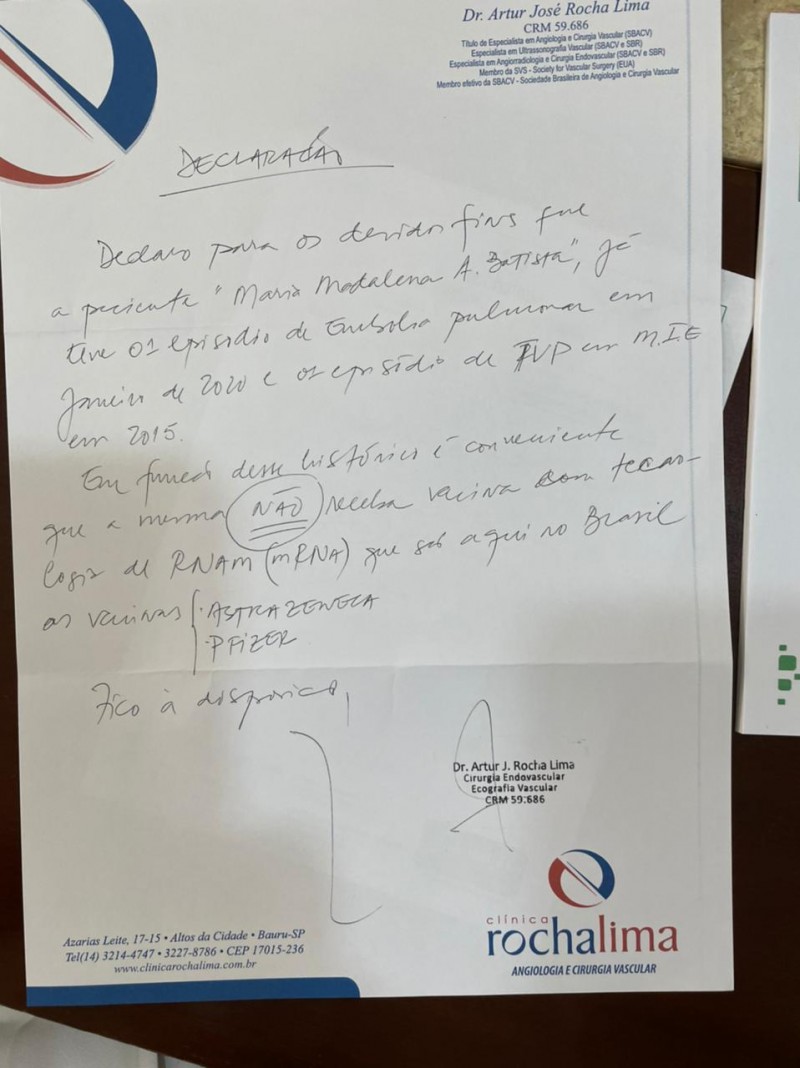 Dr. Artur José Rocha Lima
CRM 59.686
Título de Especialista em Angiologia e Cirurgia Vascular (SBACV)
Especialista em Ultrassonografia Vascular (SBACV e SBR)
Especialista em Angiorradiologia e Cirurgia Endovascular (SBACV e SBR)
Membro da SVS - Society for Vascular Surgery (EUA)
Membro efetivo da SBACV - Sociedade Brasileira de Angiologia e Cirurgia Vascular
DECLARAÇÃO
Declaro para os devidos fins que
a paciente "Maria Madalena A. Batista", já
teve 01 episódio de Embolia pulmonar em
Janeiro de 2020 e 01 episódio de TVP em M.I.E
em 2015.
Em função desse histórico é conveniente
que a mesma NÃO receba vacina com tecno-
logia de RNAM (mRNA) que são aqui no Brasil
as vacinas { · ASTRAZENECA
· PFIZER
Fico à disposição,
Dr. Artur J. Rocha Lima
Cirurgia Endovascular
Ecografia Vascular
CRM 59.686
clínica
rochalima
ANGIOLOGIA E CIRURGIA VASCULAR
Azarias Leite, 17-15 • Altos da Cidade • Bauru-SP
Tel(14) 3214-4747 • 3227-8786 • CEP 17015-236
www.clinicarochalima.com.br